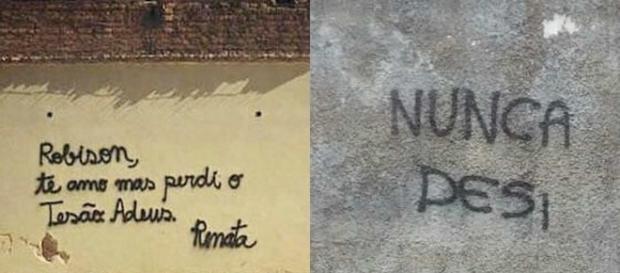 Robison,
te amo mas perdi o
Tesão Adeus.
Renata
NUNCA
DESI